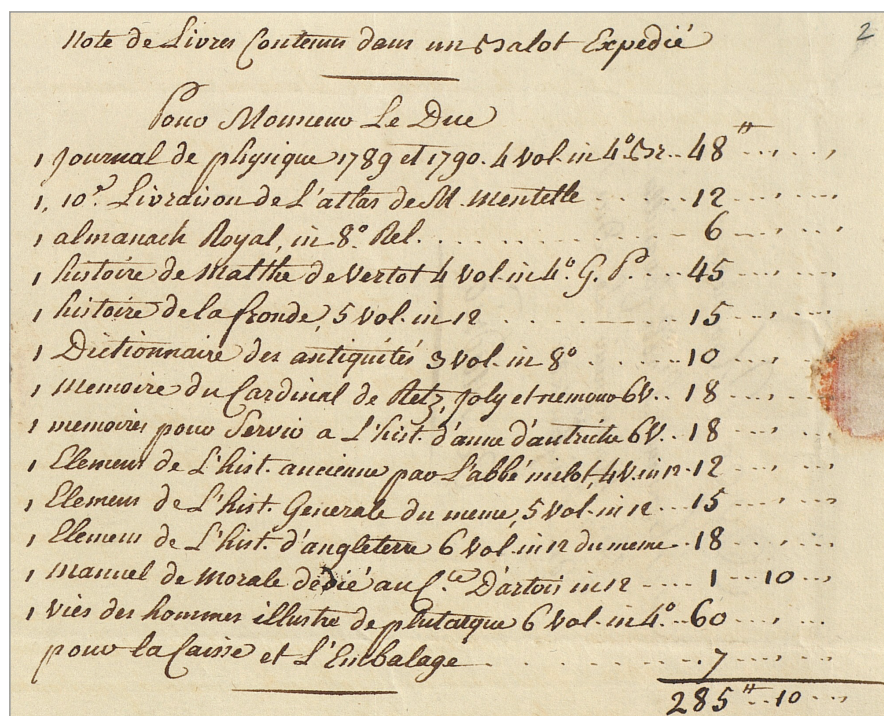 2
Note de Livres Contenus dans un Balot Expedié
Pour Monsieur Le Duc
1 Journal de physique 1789 et 1790. 4 vol. in 4º. Br. .. 48 ₶ .... , .... ,
1, 10e. Livraison de L'atlas de M. Mentelle ..... 12 .... , ....
1 almanach Royal, in 8º. Rel. .......... 6 .... , ....
1 histoire de Malthe de Vertot 4 vol. in 4º. G. P. ... 45 .... , ....
1 histoire de la fronde, 5 vol. in 12 .......... 15 .... , ....
1 Dictionnaire des antiquités 3 vol. in 8º ..... 10 .... , ....
1 memoire du Cardinal de Retz, Joly et nemour 6 V. .. 18 .... , ....
1 memoires pour Servir a L'hist. d'anne d'autriche 6 V. .. 18 .... , ....
1 Elemens de L'hist. ancienne par L'abbé milot, 4 V. in 12 . 12 .... , ....
1 Elemens de L'hist. Generale du meme, 5 vol. in 12 .. 15 .... , ....
1 Elemens de L'hist. d'angleterre 6 vol. in 12 du meme .. 18 .... , ....
1 Manuel de Morale dédié au C.te D'artois in 12 .... 1 .... 10 ....
1 Viès des hommes illustre de plutarque 6 vol. in 4º. .. 60 .... , ....
pour la Caisse et L'Embalage .......... 7 .... , ....
285 ₶ .. 10 ....